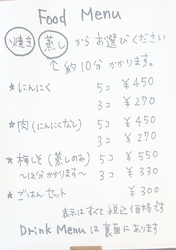 Food Menu
焼き 蒸し からお選びください
↑約10分かかります。
★にんにく 5コ ¥450
3コ ¥270
★肉(にんにくなし) 5コ ¥450
3コ ¥270
★梅しそ(蒸しのみ) 5コ ¥550
〜12分かかります〜 3コ ¥330
★ごはんセット ¥300
表示はすべて税込価格です
Drink Menuは裏面にあります